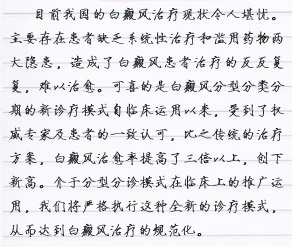 目前我国的白癜风治疗现状令人堪忧。
主要存在患者缺乏系统性治疗和滥用药物两
大隐患，造成了白癜风患者治疗的反反复
复，难以治愈。可喜的是白癜风分型分类分
期的新诊疗模式自临床运用以来，受到了权
威专家及患者的一致认可，比之传统的治疗
方案，白癜风治愈率提高了三倍以上，创下
新高。介于分型分诊模式在临床上的推广运
用，我们将严格执行这种全新的诊疗模式，
从而达到白癜风治疗的规范化。